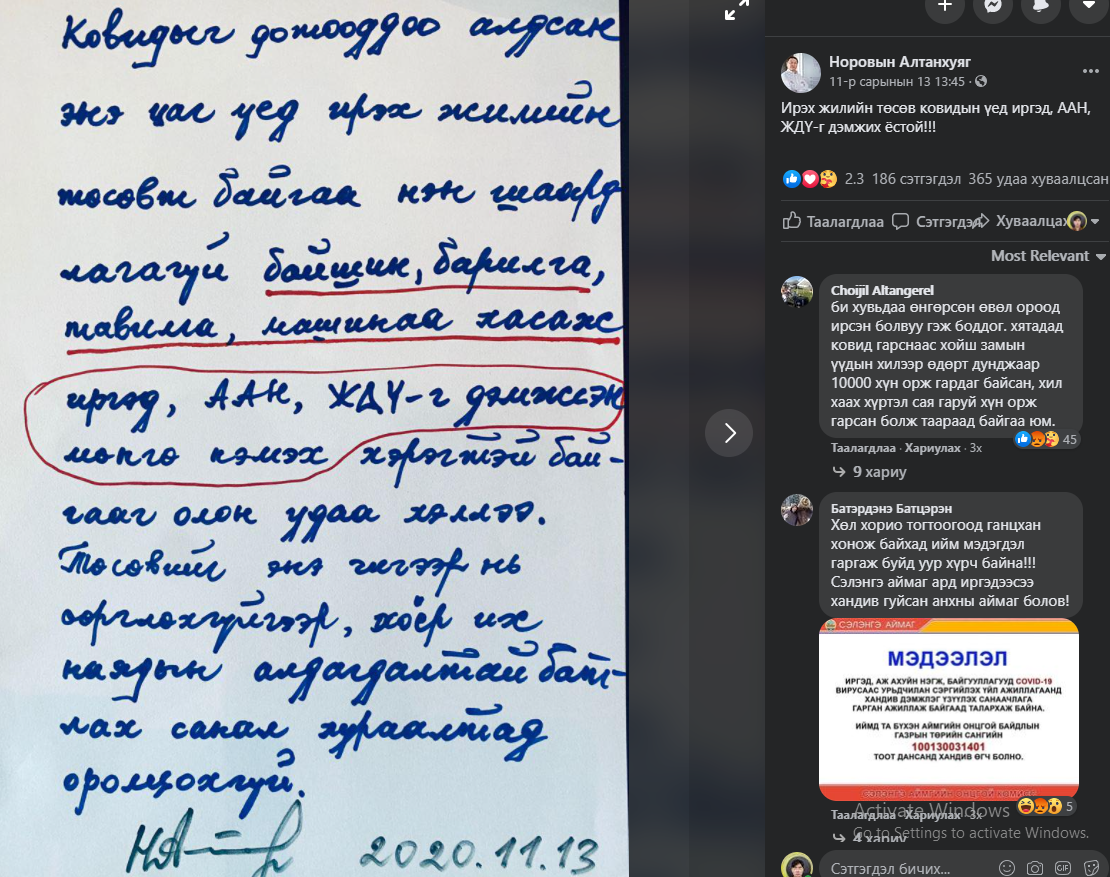 Ковидыг дотооддоо алдсан
энэ цаг үед ирэх жилийн
төсөвт байгаа нэн шаард
лагагүй байшин, барилга,
тавилга, машинаа хасаж
иргэд, ААН, ЖДҮ-г дэмжсэн
мөнгө нэмэх хэрэгтэй бай-
гааг олон удаа хэллээ.
Төсөвийг энэ чигээр нь
өөрчлөхгүйгээр, хоёр их
наядын алдагдалтай бат-
лах санал хураалтад
оролцохгүй.
2020.11.13
Норовын Алтанхуяг
11-р сарынын 13 13:45 ·
Ирэх жилийн төсөв ковидын үед иргэд, ААН,
ЖДҮ-г дэмжих ёстой!!!
2.3 186 сэтгэгдэл 365 удаа хуваалцсан
Таалагдлаа Сэтгэгдэл Хуваалцах
Most Relevant
Choijil Altangerel
би хувьдаа өнгөрсөн өвөл ороод
ирсэн болвуу гэж боддог. хятадад
ковид гарснаас хойш замын
үүдын хилээр өдөрт дунджаар
10000 хүн орж гардаг байсан, хил
хаах хүртэл сая гаруй хүн орж
гарсан болж таараад байгаа юм.
45
Таалагдлаа · Хариулах · 3х
9 хариу
Батэрдэнэ Батцэрэн
Хөл хорио тогтоогоод ганцхан
хонож байхад ийм мэдэгдэл
гаргаж буйд уур хүрч байна!!!
Сэлэнгэ аймаг ард иргэдээсээ
хандив гуйсан анхны аймаг болов!
СЭЛЭНГЭ АЙМАГ
МЭДЭЭЛЭЛ
ИРГЭД, АЖ АХУЙН НЭГЖ, БАЙГУУЛЛАГУУД COVID-19
ВИРУСААС УРЬДЧИЛАН СЭРГИЙЛЭХ ҮЙЛ АЖИЛЛАГААНД
ХАНДИВ ДЭМЖЛЭГ ҮЗҮҮЛЭХ САНААЧЛАГА
ГАРГАН АЖИЛЛАЖ БАЙГААД ТАЛАРХАЖ БАЙНА.
ИЙМД ТА БҮХЭН АЙМГИЙН ОНЦГОЙ БАЙДЛЫН
ГАЗРЫН ТӨРИЙН САНГИЙН
100130031401
ТООТ ДАНСАНД ХАНДИВ ӨГЧ БОЛНО.
СЭЛЭНГЭ АЙМГИЙН ОНЦГОЙ КОМИСС
5
Таалагдлаа · Хариулах · 3х
Activate Windows
4 хариу
Go to Settings to activate Windows.
Сэтгэгдэл бичих...
GIF